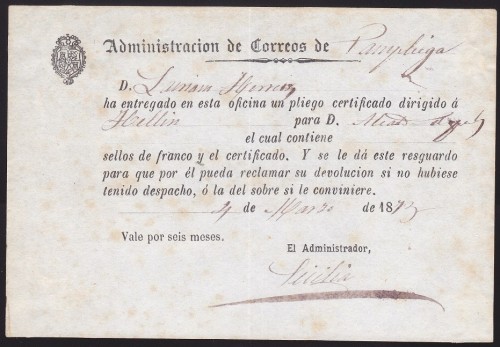 Administracion de Correos de Pampliega
D.
ha entregado en esta oficina un pliego certificado dirigido á
Hellin para D.
el cual contiene
sellos de franco y el certificado. Y se le dá este resguardo
para que por él pueda reclamar su devolucion si no hubiese
tenido despacho, ó la del sobre si le conviniere.
4 de Marzo de 187
Vale por seis meses.
El Administrador,